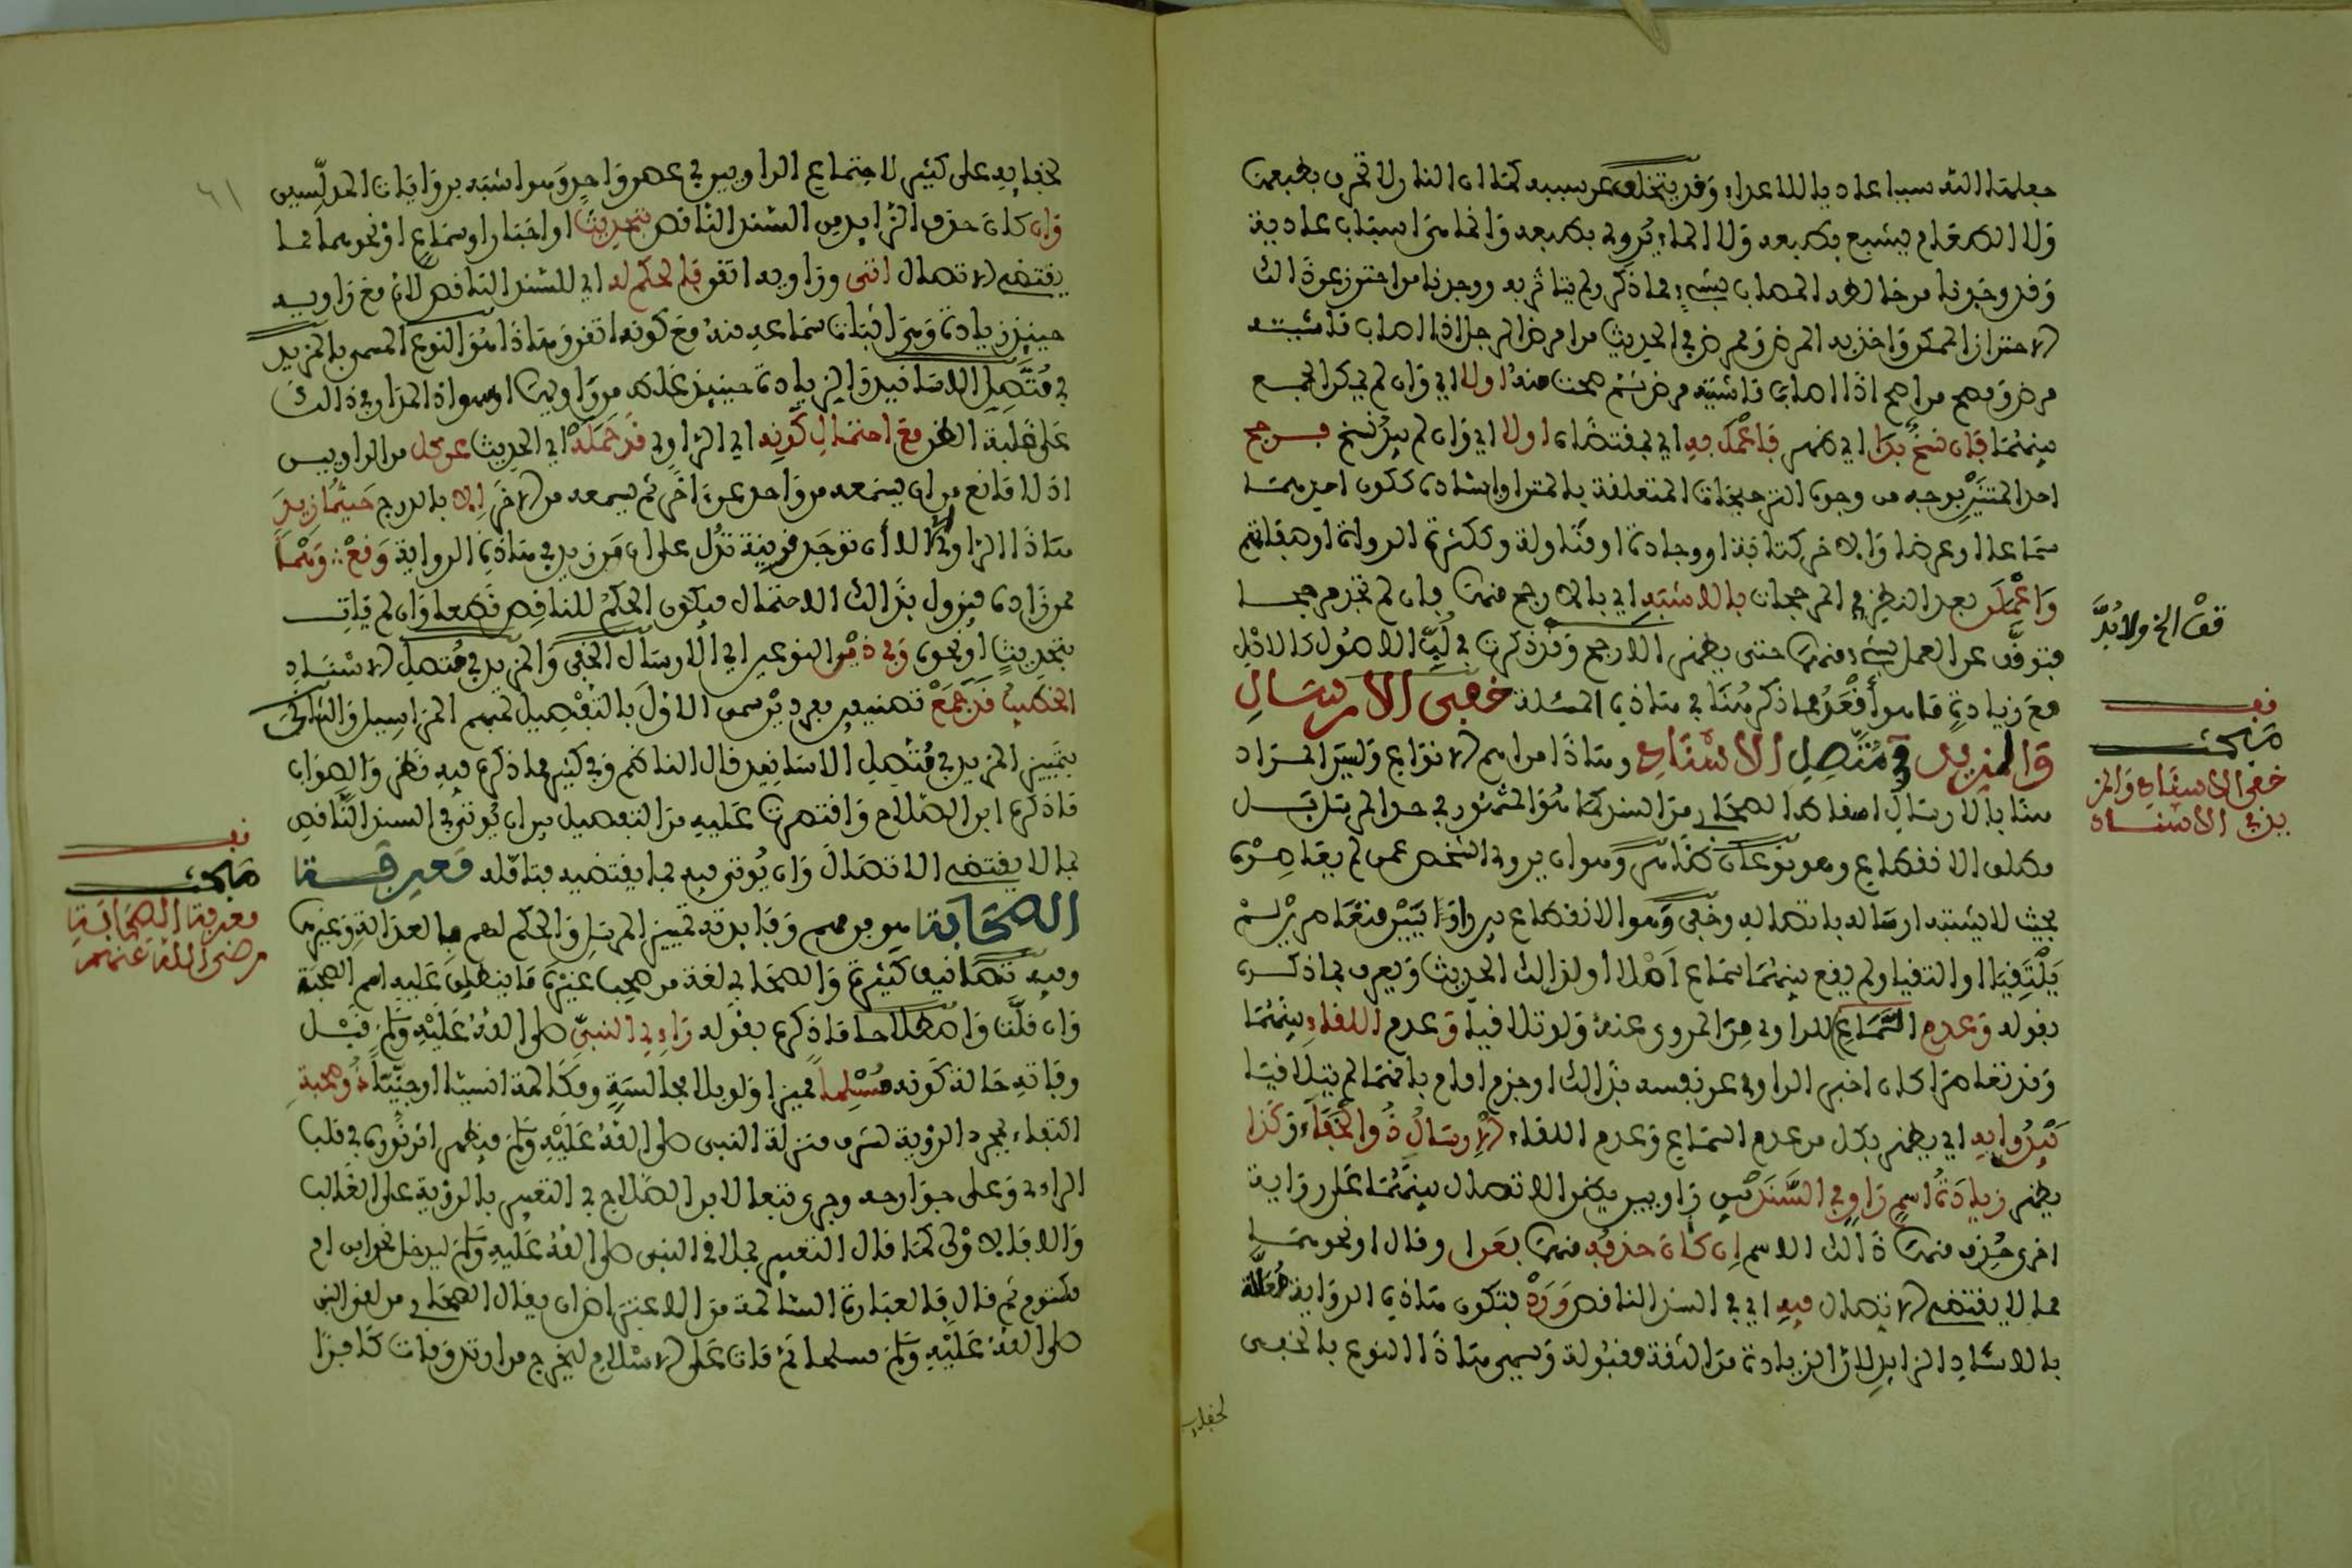 جعلها الله سببا عاديا للاعداء وقد يتخلف عن سببه كما ان النار لا تحرق بطبعها
ولا الطعام يشبع بطبعه ولا الماء يروي بطبعه وانما هي اسباب عادية
وقد وجدنا من خالط المصاب بشيء مما ذكر ولم يتاثر به ووجدنا من احترز عن ذلك
الاحتراز الممكن واخذ به المرض وممرض في الحديث من امرض الرجل اذا اصاب ماشيته
مرض ومصح من اصح اذا اصابت ماشيته مرض ثم صحت منه اولا اي وان لم يمكن الجمع
بينهما فإن نسخ بدا اي ظهر فاعمل به اي بمقتضاه اولا اي وان لم يبد نسخ فرجح
احد المتنين بوجه من وجوه الترجيحات المتعلقة بالمتن او باسناده ككون احدهما
سماعا او عرضا والاخر كتابة او وجادة او مناولة وككثرة الرواة او صفاتهم
واعملن بعد النظر في المرجحات بالاشبه اي بالارجح منها فان لم تجد مرجحا
فتوقف عن العمل بشيء منهما حتى يظهر الارجح وقد ذكرت في لب الاصول كالاصل
مع زيادة ما هو أقعد مما ذكر هنا في هذه المسئلة خفي الارسال
والمزيد في متصل الاسناد وهذا من اهم الانواع وليس المراد
هنا بالارسال اسقاط الصحابي من السند كما هو المشهور في حد المرسل بل
مطلق الانقطاع وهو نوعان ظاهر وهو ان يروي الشخص عمن لم يعاصره
بحيث لا يشتبه ارساله باتصاله وخفي وهو الانقطاع بين راويين متعاصرين لم
يلتقيا او التقيا ولم يقع بينهما سماع اصلا او لذلك الحديث ويعرف بما ذكره
بقوله وعدم السماع للراوي من المروي عنه ولو تلاقيا وعدم اللقاء بينهما
وقد تعاصرا كان اخبر الراوي عن نفسه بذلك او جزم امام بانهما لم يتلاقيا
يبدو به اي يظهر بكل من عدم السماع وعدم اللقاء الارسال ذو الخفاء وكذا
يظهر زيادة اسم راو في السند بين راويين يظن الاتصال بينهما على رواية
اخرى حذف منها ذلك الاسم إن كان حذفه منها بعن او قال او نحوهما
مما لا يقتضي الاتصال فيه اي في السند الناقص ورد فتكون هذه الرواية معلة
بالاسناد الزايد لان الزيادة من الثقة مقبولة ويسمى هذا النوع بالخفي
لخفايه
قف الخ ولابد
قف
مبحث
خفي الارسال والمز
يد في الاسناد
لخفايه على كثير لاجتماع الراويين في عصر واحد وهو اشبه بروايات المدلسين
وإن كان حذف الزايد من السند الناقص بتحديث او اخبار او سماع او نحوهما مما
يقتضي الاتصال انتى وراويه اتقن فالحكم له اي للسند الناقص لان مع راويه
حينئذ زيادة وهي اثبات سماعه منه مع كونه اتقن وهذا هو النوع المسمى بالمزيد
في متصل الاسانيد والزيادة حينئذ غلط من راويها او سهو اذ المدار في ذلك
على غلبة الظن مع احتمال كونه اي الراوي قد حمله اي الحديث عن كل من الراويين
اذ لا مانع من ان يسمعه من واحد عن اخر ثم يسمعه من الاخر إلا بالدرج حيثما زيد
هذا الراوي الا أن توجد قرينة تدل على ان من زيد في هذه الرواية وقع وهما
ممن زاده فيزول بذلك الاحتمال فيكون الحكم للناقص قطعا وان لم يات
بتحديث او نحوه وفي ذين النوعين اي الارسال الخفي والمزيد في متصل الاسناد
الخطيب قد جمع تصنيفين مفردين سمى الاول بالتفصيل لمبهم المراسيل والثاني
بتمييز المزيد في متصل الاسانيد قال الناظم وفي كثير مما ذكره فيه نظر والصواب
ما ذكره ابن الصلاح واقتصرت عليه من التفصيل بين ان يوتى في السند الناقص
بما لا يقتضي الاتصال وان يوتى فيه بما يقتضيه بتامله معرفة
الصحابة هو فن مهم وفايدته تمييز المرسل والحكم لهم بالعدالة وغيرها
وفيه تصانيف كثيرة والصحابي لغة من صحب غيره ما ينطلق عليه اسم الصحبة
وان قلت واصطلاحا ما ذكره بقوله راءِي النبي صلى الله عليه وسلم قبل
وفاته حالة كونه مسلما مميزا ولو بلا مجالسة ومكالمة انسيا او جنيا ذو صحبة
اكتفاء بمجرد الرؤية لشرف منزلة النبي صلى الله عليه وسلم فيظهر اثر نوره في قلب
الراءي وعلى جوارحه وجرى تبعا لابن الصلاح في التعبير بالرؤية على الغالب
والا فالاولى كما قال التعبير بملاقي النبي صلى الله عليه وسلم ليدخل نحو ابن ام
مكتوم ثم قال فالعبارة السالمة من الاعتراض ان يقال الصحابي من لقي النبي
صلى الله عليه وسلم مسلما ثم مات على الاسلام ليخرج من ارتد ومات كافرا
قف
مبحث
معرفة الصحابة
رضي الله عنهم
٦١